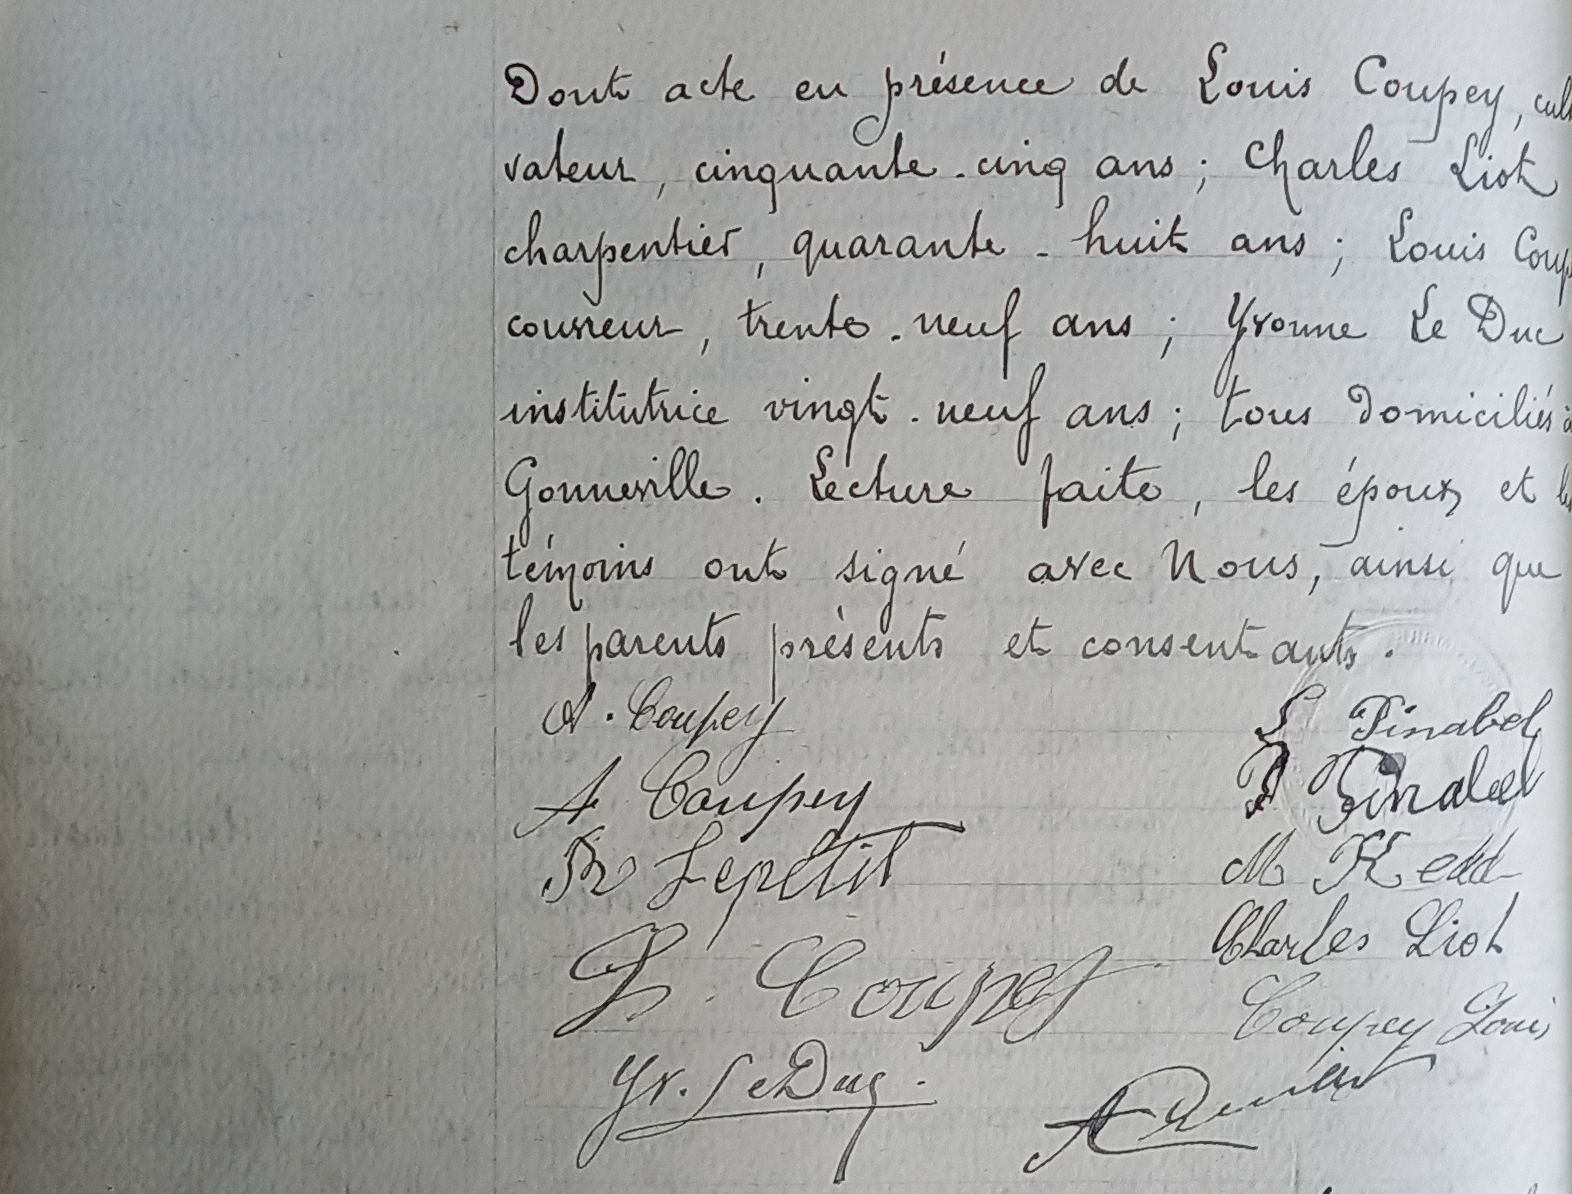 Dont acte en présence de Louis Coupey, cul
vateur, cinquante-cinq ans; Charles Liot
charpentier, quarante-huit ans; Louis Coup
couvreur, trente-neuf ans; Yvonne Le Duc
institutrice vingt-neuf ans; tous domiciliés à
Gonneville. Lecture faite, les époux et les
témoins ont signé avec Nous, ainsi que
les parents présents et consentants.
A. Coupey L Pinabel
A Coupey P Pinabel
R Lepetit M
Charles Liot
L. Coupey Coupey Louis
Yv. Le Duc.
A